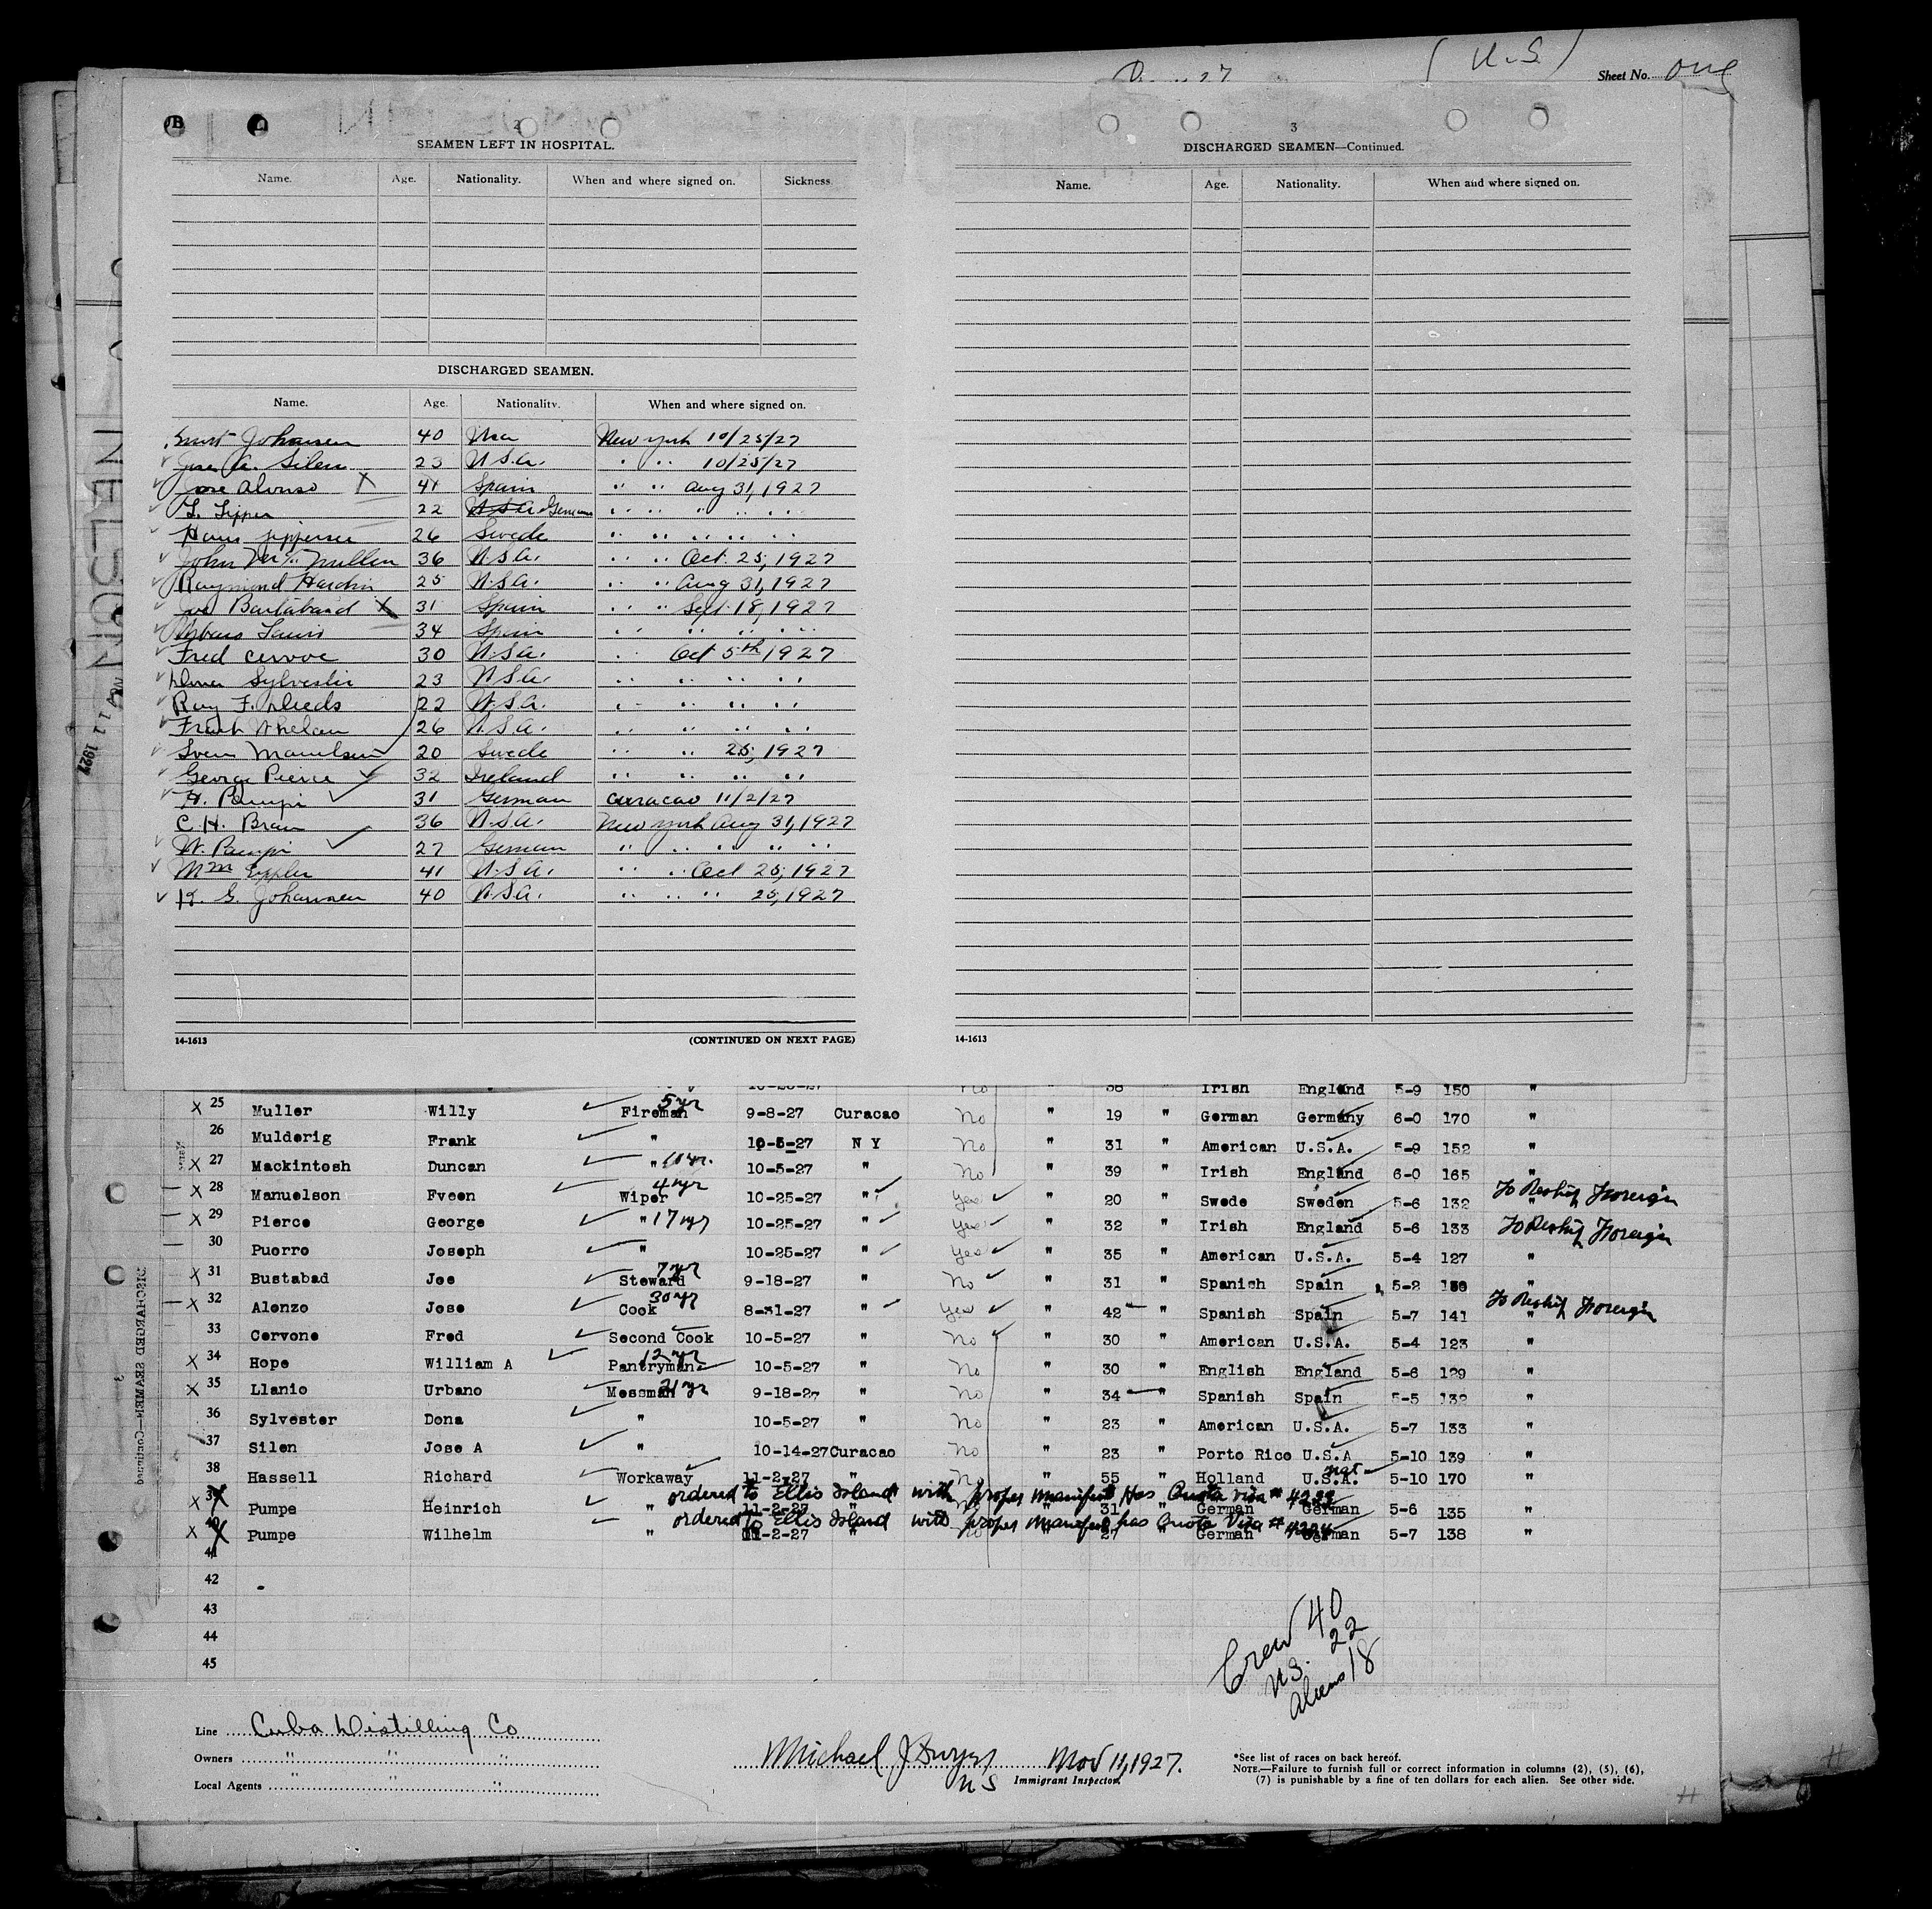 ( U.S )
Sheet No. one
2
SEAMEN LEFT IN HOSPITAL.
Name. Age. Nationality. When and where signed on. Sickness
DISCHARGED SEAMEN.
Name. Age. Nationality. When and where signed on.
Johansen 40 New York 10/25/27
A. Silen 23 U.S.A. " " 10/25/27
Jose Alonso X Spain " " Aug 31, 1927
22 U.S.A. German " " " " "
Hans 26 Swede " " " " "
John Mc Mullen 36 U.S.A. " " Oct. 25, 1927
Raymond Hardin 25 U.S.A. " " Aug 31, 1927
X 31 Spain " " Sept. 18, 1927
34 Spain " " " " "
Fred Cervoe 30 U.S.A. " Oct 5th 1927
Sylvester 23 U.S.A. " " " "
Ray F. 22 U.S.A. " " " "
Frank Whelan 26 U.S.A. " " " "
Sven Manuelsen 20 Swede " " 25, 1927
George Pierce 32 Ireland " " " "
H. Pumpi 31 German Curacao 11/2/27
C. H. Braun 36 U.S.A. New York Aug 31, 1927
W. Pumpi 27 German " " " " "
Wm Eppler 41 U.S.A. " " Oct 25, 1927
K. G. Johansen 40 U.S.A. " " " 25, 1927
14-1613 (CONTINUED ON NEXT PAGE)
3
DISCHARGED SEAMEN—Continued.
Name. Age. Nationality. When and where signed on.
14-1613
10-25-27 No " 38 " Irish England 5-9 150 "
X 25 Muller Willy Fireman 5 yr 9-8-27 Curacao No " 19 " German Germany 6-0 170 "
26 Mulderig Frank " 10-5-27 N Y No " 31 " American U.S.A. 5-9 152 "
X 27 Mackintosh Duncan " 10 yr. 10-5-27 " No " 39 " Irish England 6-0 165 "
X 28 Manuelson Fveen Wiper 4 yr 10-25-27 " Yes " 20 " Swede Sweden 5-6 132 " To Reship Foreign
X 29 Pierce George " 17 yr 10-25-27 " Yes " 32 " Irish England 5-6 133 To Reship Foreign
30 Puorro Joseph " 10-25-27 " Yes " 35 " American U.S.A. 5-4 127 "
X 31 Bustabad Joe Steward 7 yr 9-18-27 " No " 31 " Spanish Spain 5-2 "
X 32 Alonzo Jose Cook 30 yr 8-31-27 " Yes " 42 " Spanish Spain 5-7 141 " To Reship Foreign
33 Cervone Fred Second Cook 10-5-27 " No " 30 " American U.S.A. 5-4 123 "
X 34 Hope William A Pantryman 12 yr 10-5-27 " No " 30 " English England 5-6 129 "
X 35 Llanio Urbano Messman 21 yr 9-18-27 " No " 34 " Spanish Spain 5-5 132 "
36 Sylvester Dona " 10-5-27 " No " 23 " American U.S.A. 5-7 133 "
37 Silen Jose A " 10-14-27 Curacao No " 23 " Porto Rico U.S.A 5-10 139 "
38 Hassell Richard Workaway 11-2-27 " No " 55 " Holland U.S.A. nat 5-10 170 "
ordered to Ellis Island with proper manifest Has Quota visa # 4223
X 39 Pumpe Heinrich " 11-2-27 " No " 31 " German German 5-6 135 "
ordered to Ellis Island with proper manifest has Quota Visa # 4224
X 40 Pumpe Wilhelm " 11-2-27 " No " 27 " German German 5-7 138 "
41
42
43
44
45
Crew 40
U.S. 22
Aliens 18
Line Cuba Distilling Co
Owners " " "
Local Agents " " "
Michael J. Dwyer Nov 11, 1927.
U S Immigrant Inspector.
*See list of races on back hereof.
NOTE.—Failure to furnish full or correct information in columns (2), (5), (6),
(7) is punishable by a fine of ten dollars for each alien. See other side.